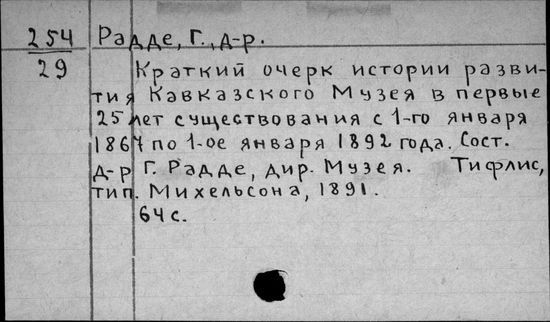 254
29
Радде, Г., д-р.
Краткий очерк истории разви-
тия Кавказского Музея в первые
25 лет существования с 1-го января
1867 по 1-ое января 1892 года. Сост.
д-р Г. Радде, дир. Музея. Тифлис,
тип. Михельсона, 1891.
64 с.